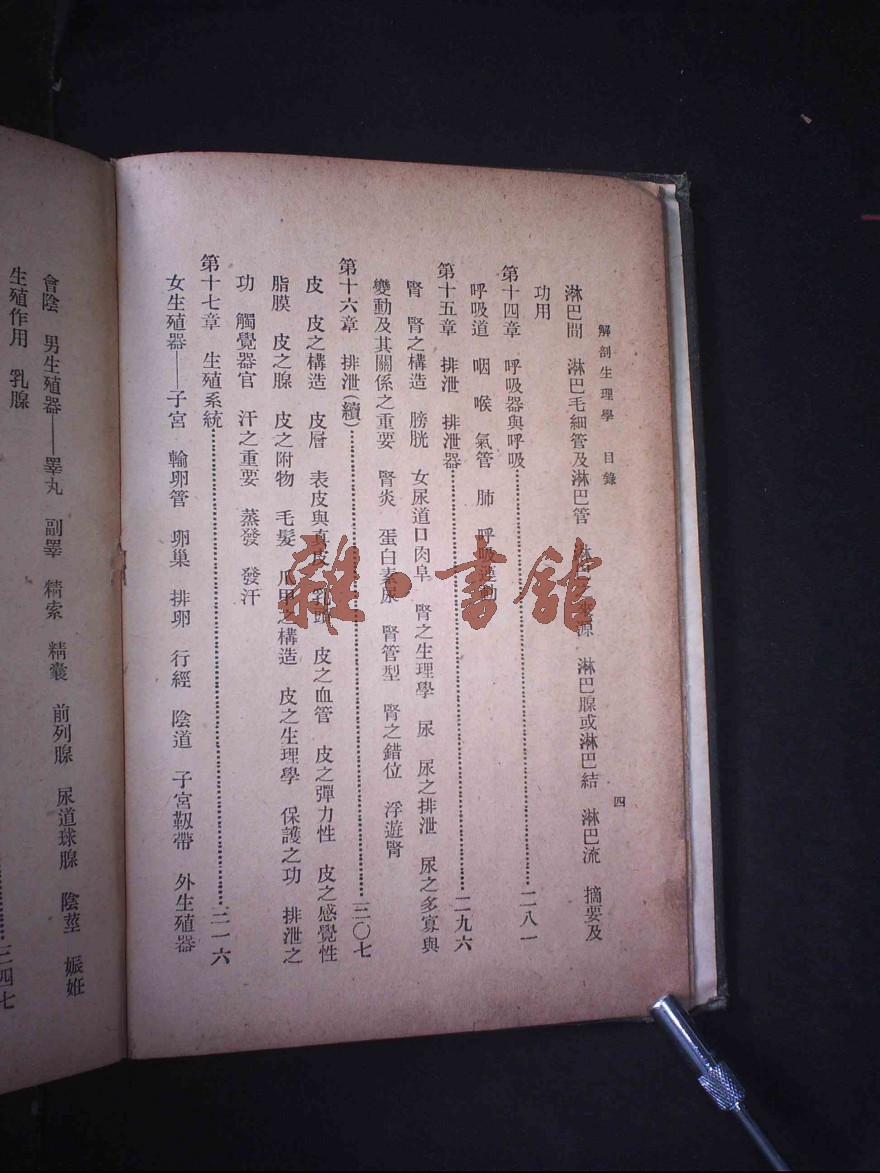 解剖生理學 目錄
四
淋巴間 淋巴毛細管及淋巴管 淋巴之來源 淋巴腺或淋巴結 淋巴流 摘要及
功用
第十四章 呼吸器與呼吸……二八一
呼吸道 咽 喉 氣管 肺 呼吸運動
第十五章 排泄 排泄器……二九六
腎 腎之構造 膀胱 女尿道口肉阜 腎之生理學 尿 尿之排泄 尿之多寡與
變動及其關係之重要 腎炎 蛋白素尿 腎管型 腎之錯位 浮遊腎
第十六章 排泄(續)……三〇七
皮 皮之構造 皮層 表皮與真皮 乳頭 皮之血管 皮之彈力性 皮之感覺性
脂膜 皮之腺 皮之附物 毛髮 爪甲之構造 皮之生理學 保護之功 排泄之
功 觸覺器官 汗之重要 蒸發 發汗
第十七章 生殖系統……三一六
女生殖器——子宮 輸卵管 卵巢 排卵 行經 陰道 子宮靱帶 外生殖器
會陰 男生殖器——睪丸 副睪 精索 精囊 前列腺 尿道球腺 陰莖 娠姙
生殖作用 乳腺……三四七
雜·書舘